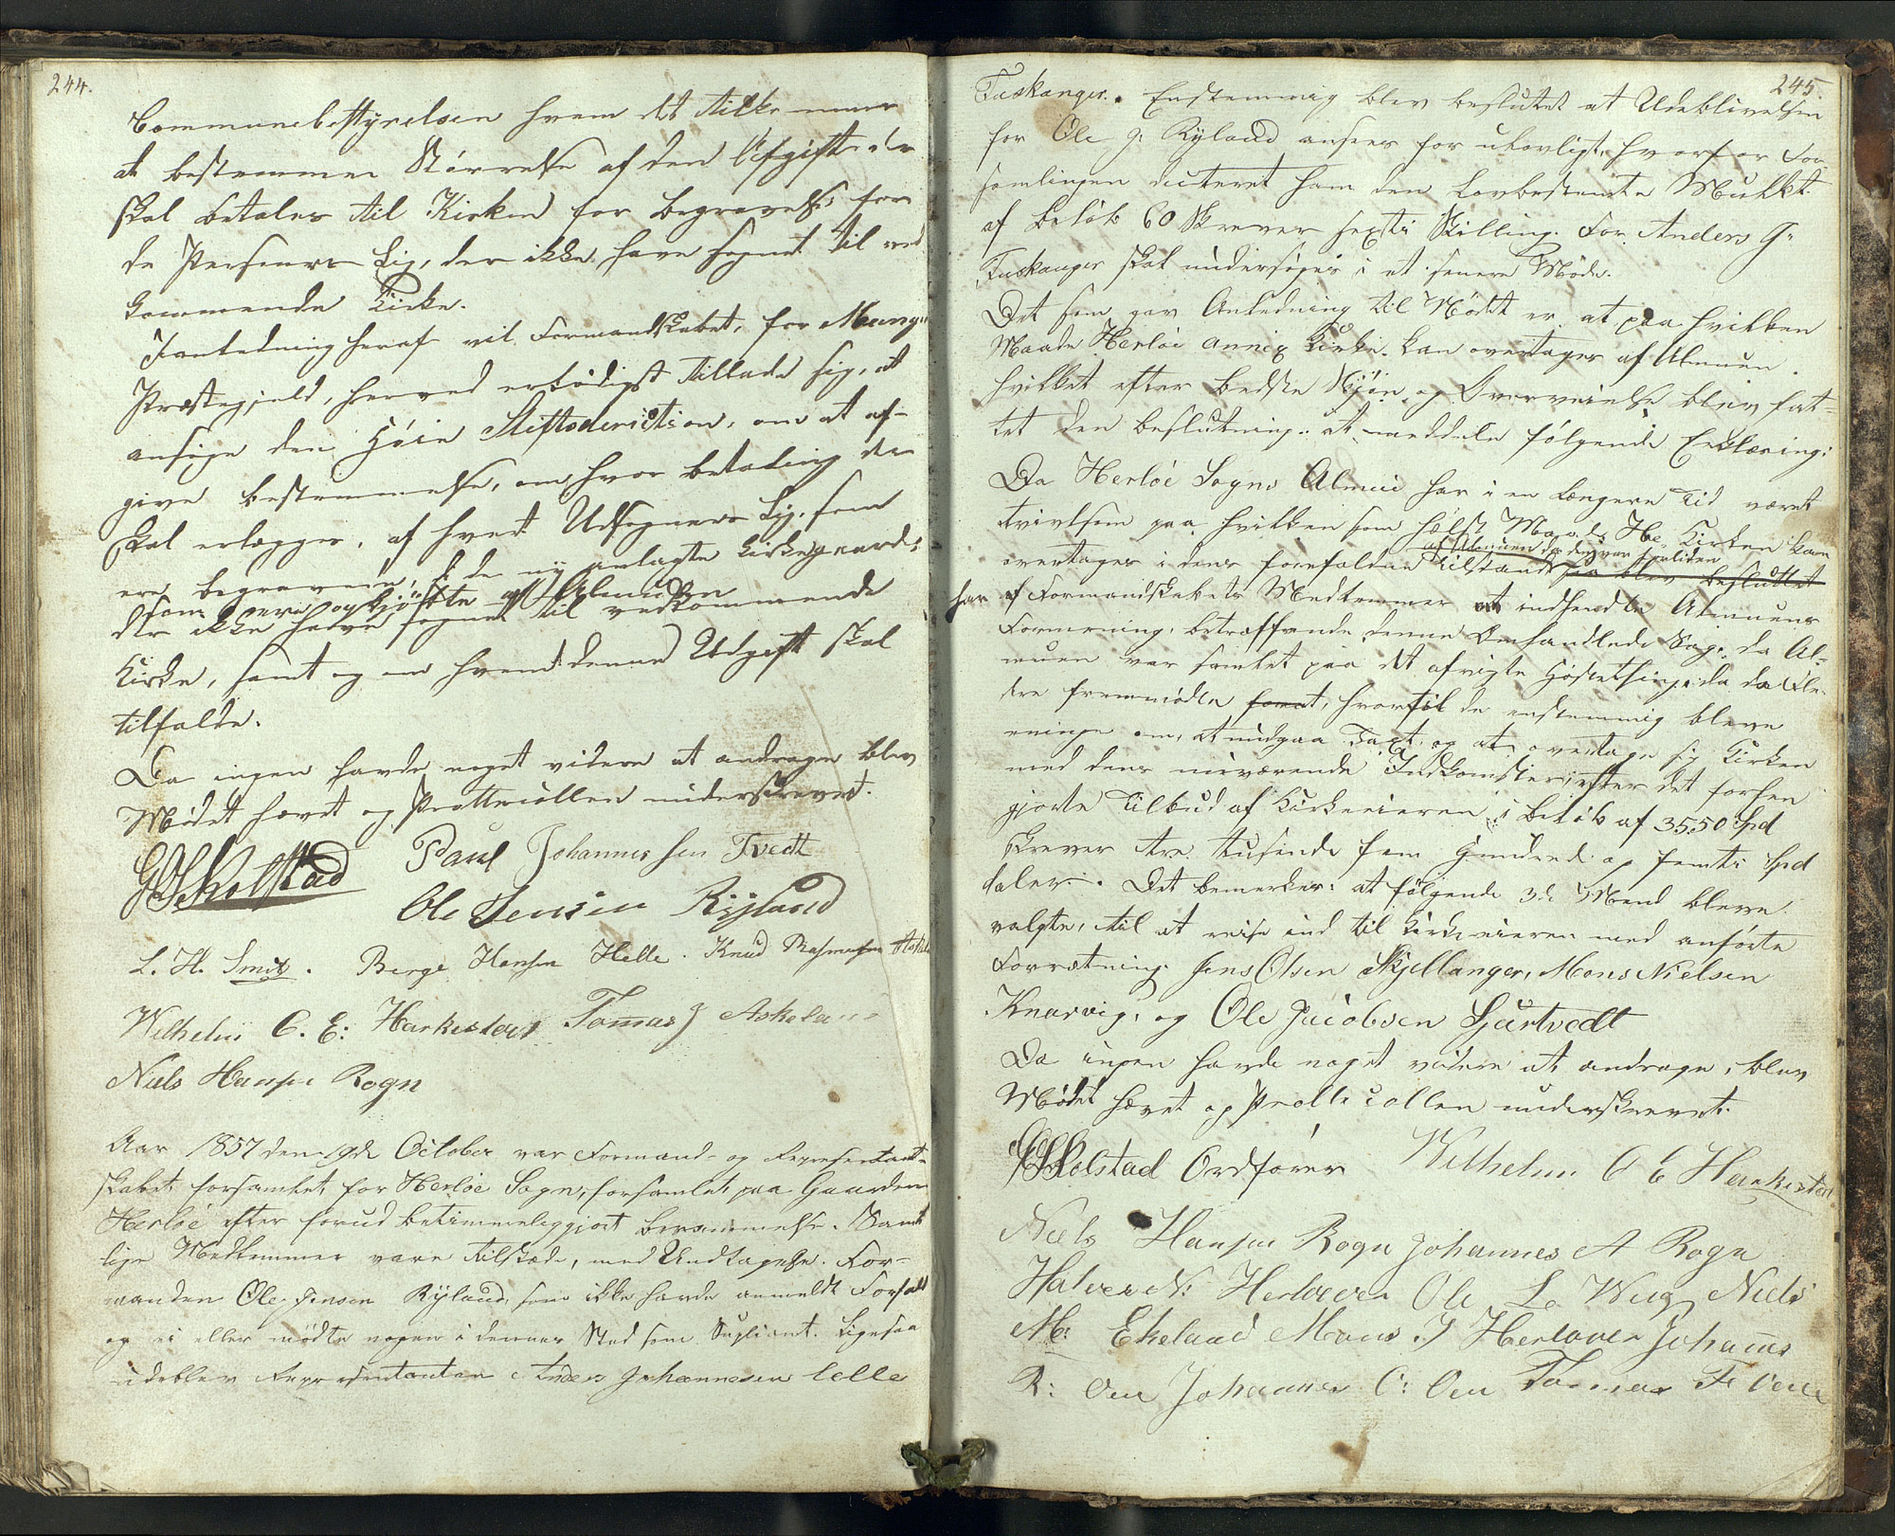 244.
Communebestyrelsen hvem det tilkommer
at bestemme Størrelse af den Afgift der
skal betales til Kirken for begravelse for
de Personers Lig, der ikke have sognet til ved
kommende Kirke.
I anledning heraf vil Formandskabet, for Manger
Præstegjeld, herved erbødigst tillade sig, at
ansøge den Høie Stiftsdirection, om at af-
give bestemmelse, om hvor betaling der
skal erlægges, af hvert Udsogners Lig, som
er begravene, i de ny anlagte Kirkegaarde
som ere opkjøbte af Almuen
der ikke have sognet til vedkommende
Kirke, samt og om hvem denne Udgift skal
tilfalde.
Da ingen havde noget videre at andrage blev
Mødet hævet og Protecollen underskrevet.
G Skolstad Paul Johannessen Tvedt
Ole Jensen Rÿland
L. H. Smit. Berge Hansen Helle. Knud Rasmussen
Wilhelm C. E: Harkestad Tomas J Askeland
Niels Hansen Rogn
Aar 1857 den 19de October var Formand- og Representant-
skabet forsamlet for Herløe Sogn, forsamlet paa Gaarden
Herløe efter forud betimmeliggjort berammelse. Samt
lige Medlemmer vare tilstæde, med Undtagelse. For-
manden Ole Jensen Rÿland, som ikke havde anmeldt Forfald
og ei eller mødte nogen i dennes Sted som Supliant. Ligesaa
udeblev Representanten Anders Johannesen
245.
Tuskanger. Enstemmig blev besluttet at Udeblivelsen
for Ole J. Rÿland ansees for ulovligt, hvorfor For
samlingen dicteret ham den Lovbestemte Mulkt
af beløb 60 Skrever sexti Skilling. For Anders J:
Tuskanger skal undersøges i et senere Møde.
Det som gav Anledning til Mødet er at paa hvilken
Maade Herløe annex Kirke kan overtages af Almuen.
hvilket efter bedste Skjøn og Overveielse blev fat-
tet den beslutning: at meddele følgende Erklæring:
Da Herløe Sogns Almue har i en længere tid været
tvivlsom paa hvilken som helst Maade He. Kirken kan
af Almuen da den var
overtages i dens forefaldne tilstand saa blev besluttet
har af Formandskabets Medlemmer at indhendte Almuens
Formening, betræffende denne Omhandlede Sag, da Al-
muen var samlet paa det afvigte Høstething, da da
dre fremmødte, hvortil de enstemmig bleve
eninge om, at indgaa Taxt, og at overtage sig Kirken
med dens nuværende Indkomster, efter det forhen
gjorte Tilbud af Kirkeeieren, i beløb af 3550 Spd
Skrever tre tusinde fem Hundred og femti Spd
daler. Det bemerkes: at følgende 3de Mend bleve
valgte, til at reise ind til Kirkeeieren med anførte
Forretning. Jens Olsen Skjellanger, Mons Nielsen
Knarvig, og Ole Jacobsen Hjertvedt
Da ingen havde noget videre at andrage, blev
Mødet hævet og Protecollen underskrevet.
G Skolstad Ordfører Wilhelm C E Harkestad
Niels Hansen Rogn Johannes A Rogn
Halver N: Herløver Ole L. Niels
M: Ekeland Mons J Herløver Johannes
R: Oen Johannes C: Oen Tomas